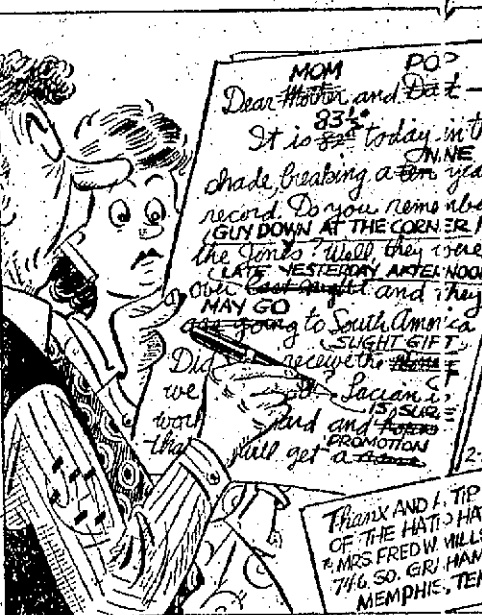 MOM POP
Dear Mother and Dad —
83½°
It is 82° today in th
NINE
shade, breaking a ten yea
record. Do you remembe
GUY DOWN AT THE CORNER
the Jones? Well, they were
LATE YESTERDAY AFTERNOON
over last night and they
MAY GO
are going to South America
SLIGHT GIFT
Did receive the
we Lucian is
IS SURE
work and
PROMOTION
that will get a
2-
Thanx AND A TIP
OF THE HATLO HA
TO MRS. FRED W. MILLS
746 SO. GRAHAM
MEMPHIS, TEN